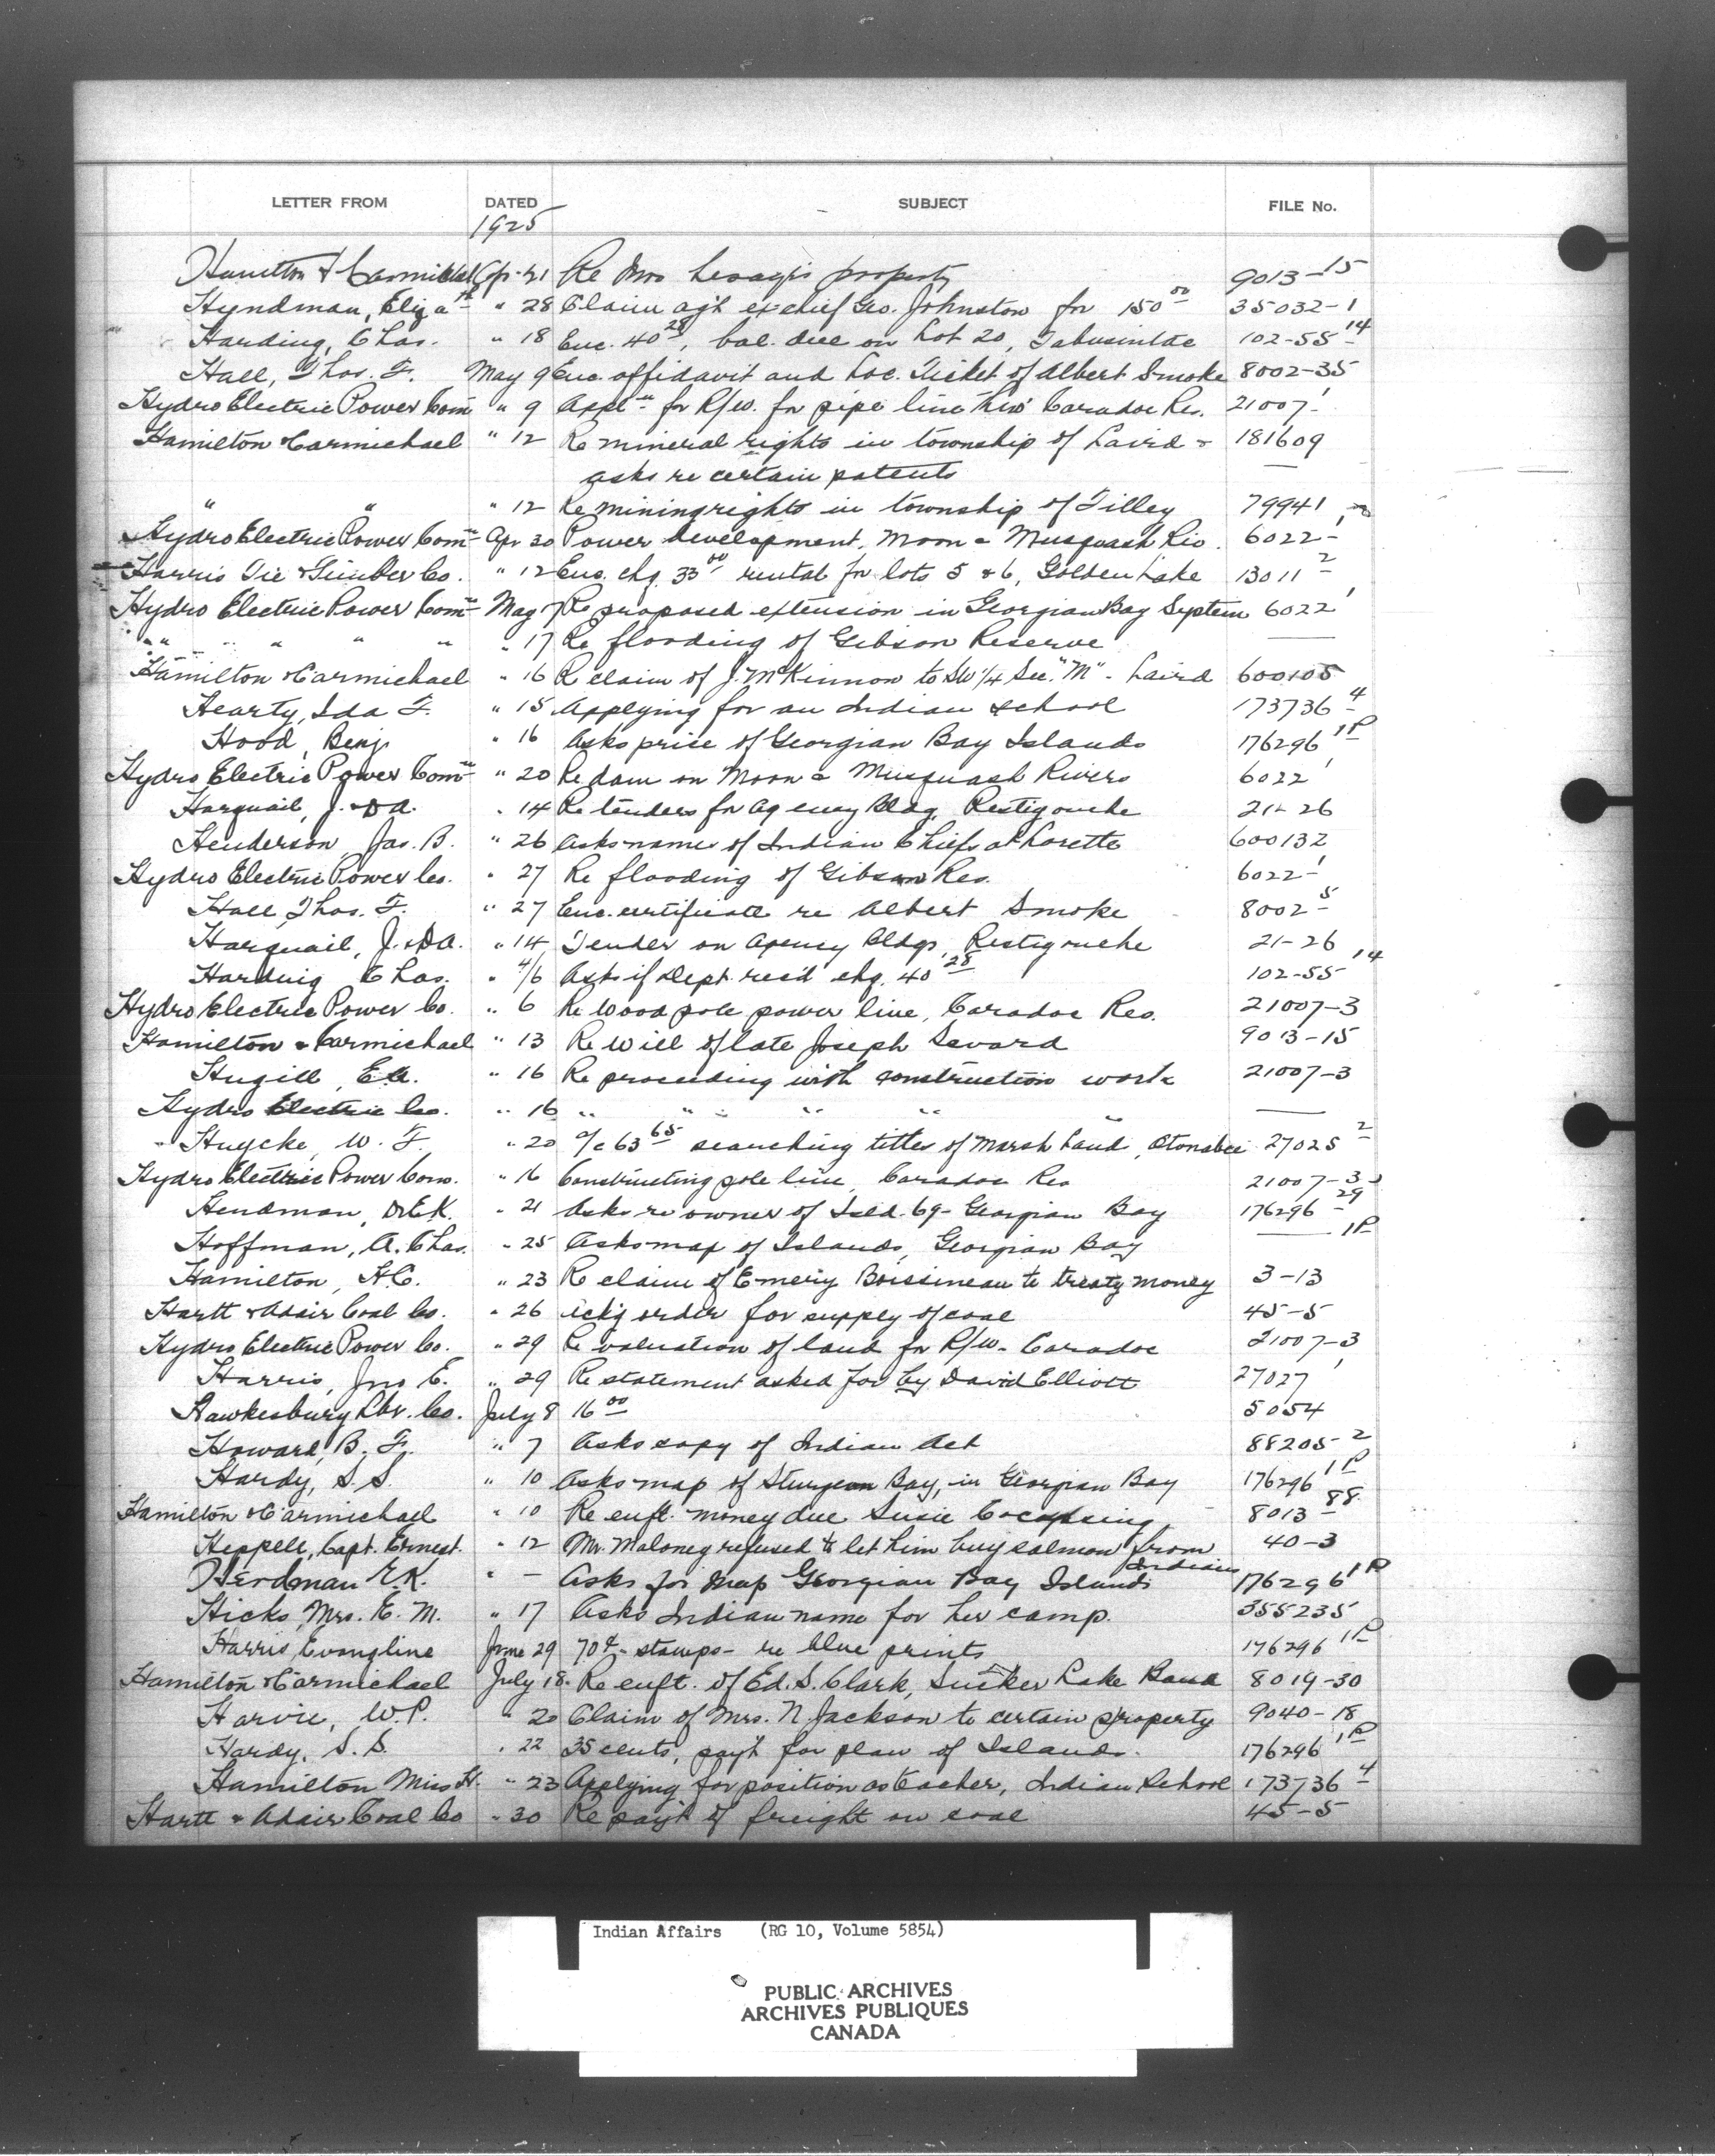 LETTER FROM DATED SUBJECT FILE No.
1925
Hamilton & Carmichael Apr 21 Re Mrs property 9013-15
Hyndman, Eliza th " 28 Claim agst ex chief Geo. Johnston for 150 00 35032-1
Harding, Chas. " 18 Enc. 40 28, bal. due on Lot 20, Tabusintac 102-55-14
Hall, Thos. F. May 9 Enc. affidavit and Loc. Ticket of Albert Smoke 8002-35
Hydro Electric Power Com " 9 Appl n for R/W. for pipe line thro' Caradoc Res. 21007-1
Hamilton & Carmichael " 12 Re mineral rights in township of Laird & 181609
asks re certain patents —
" " " 12 Re mining rights in township of Tilley 79941
Hydro Electric Power Com n Apr 30 Power development, Moon & Musquash Riv. 6022-1
Harris Tie & Timber Co. " 12 Enc. chq. 33 00 rental for lots 5 & 6, Golden Lake 13011-2
Hydro Electric Power Com n May 7 Re proposed extension in Georgian Bay System 6022-1
" " " " " " 17 Re flooding of Gibson Reserve —
Hamilton & Carmichael " 16 Re claim of J. McKinnon to SW 1/4 Sec. "M" - Laird 600105
Hearty, Ida F. " 15 Applying for an Indian school 173736-4
Hood, Benj. " 16 Asks price of Georgian Bay Islands 176296-1P
Hydro Electric Power Com n " 20 Re dam on Moon & Musquash Rivers 6022-1
Harquail, J. & D A. " 14 Re tenders for agency bldg, Restigouche 21-26
Henderson, Jas. B. " 26 Asks names of Indian Chiefs at Lorette 600132
Hydro Electric Power Co. " 27 Re flooding of Gibson Res. 6022-1
Hall, Thos. F. " 27 Enc. certificate re Albert Smoke 8002-5
Harquail, J. & D A. " 14 Tender on Agency Bldgs, Restigouche 21-26
Harding Chas. " 4/6 Asks if Dept. rec'd chq. 40 28 102-55-14
Hydro Electric Power Co. " 6 Re wood pole power line, Caradoc Res. 21007-3
Hamilton & Carmichael " 13 Re will of late Joseph Savard 9013-15
Hugill, E.A. " 16 Re proceeding with construction work 21007-3
Hydro Electric Co. " 16 " " " " " —
Huycke, W. F. " 20 a/c 63 65 searching titles of Marsh Land, Otonabee 27025-2
Hydro Electric Power Com. " 16 Constructing pole line, Caradoc Res 21007-3
Hendman, Dr E.K. " 21 Asks re owner of Isld. 69 - Georgian Bay 176296-29
Hoffman, A. Chas. " 25 Asks map of Islands, Georgian Bay — 1P
Hamilton, H.C. " 23 Re claim of Emery Boissineau to treaty money 3-13
Hartt & Adair Coal Co. " 26 Ack'g order for supply of coal 45-5
Hydro Electric Power Co. " 29 Re valuation of land for R/W - Caradoc 21007-3
Harris, Jno E. " 29 Re statement asked for by David Elliott 27027-1
Hawkesbury Lbr. Co. July 8 16 00 5054
Howard, B. F. " 7 Asks copy of Indian Act 88205-2
Hardy, S. S. " 10 Asks map of Sturgeon Bay, in Georgian Bay 176296-1P
Hamilton & Carmichael " 10 Re enft. money due Susie 8013-88
Heppell, Capt. Ernest. " 12 Mr. Maloney refused to let him buy salmon from Indians 40-3
Herdman E.K. " — Asks for map Georgian Bay Islands 176296 1P
Hicks, Mrs. E. M. " 17 Asks Indian name for her camp. 355235
Harris, Evangline June 29 70¢ - stamps - re blue prints 176296-1P
Hamilton & Carmichael July 18. Re enft. of Ed. S. Clark, Sucker Lake Band 8019-30
Harvie, W.P. " 20 Claim of Mrs. N. Jackson to certain property 9040-18
Hardy, S. S. " 22 35 cents, pay't for plan of Islands. 176296-1P
Hamilton Miss H. " 23 Applying for position as teacher, Indian School 173736-4
Hartt & Adair Coal Co " 30 Re pay't of freight on coal 45-5
Indian Affairs (RG 10, Volume 5854)
PUBLIC ARCHIVES
ARCHIVES PUBLIQUES
CANADA